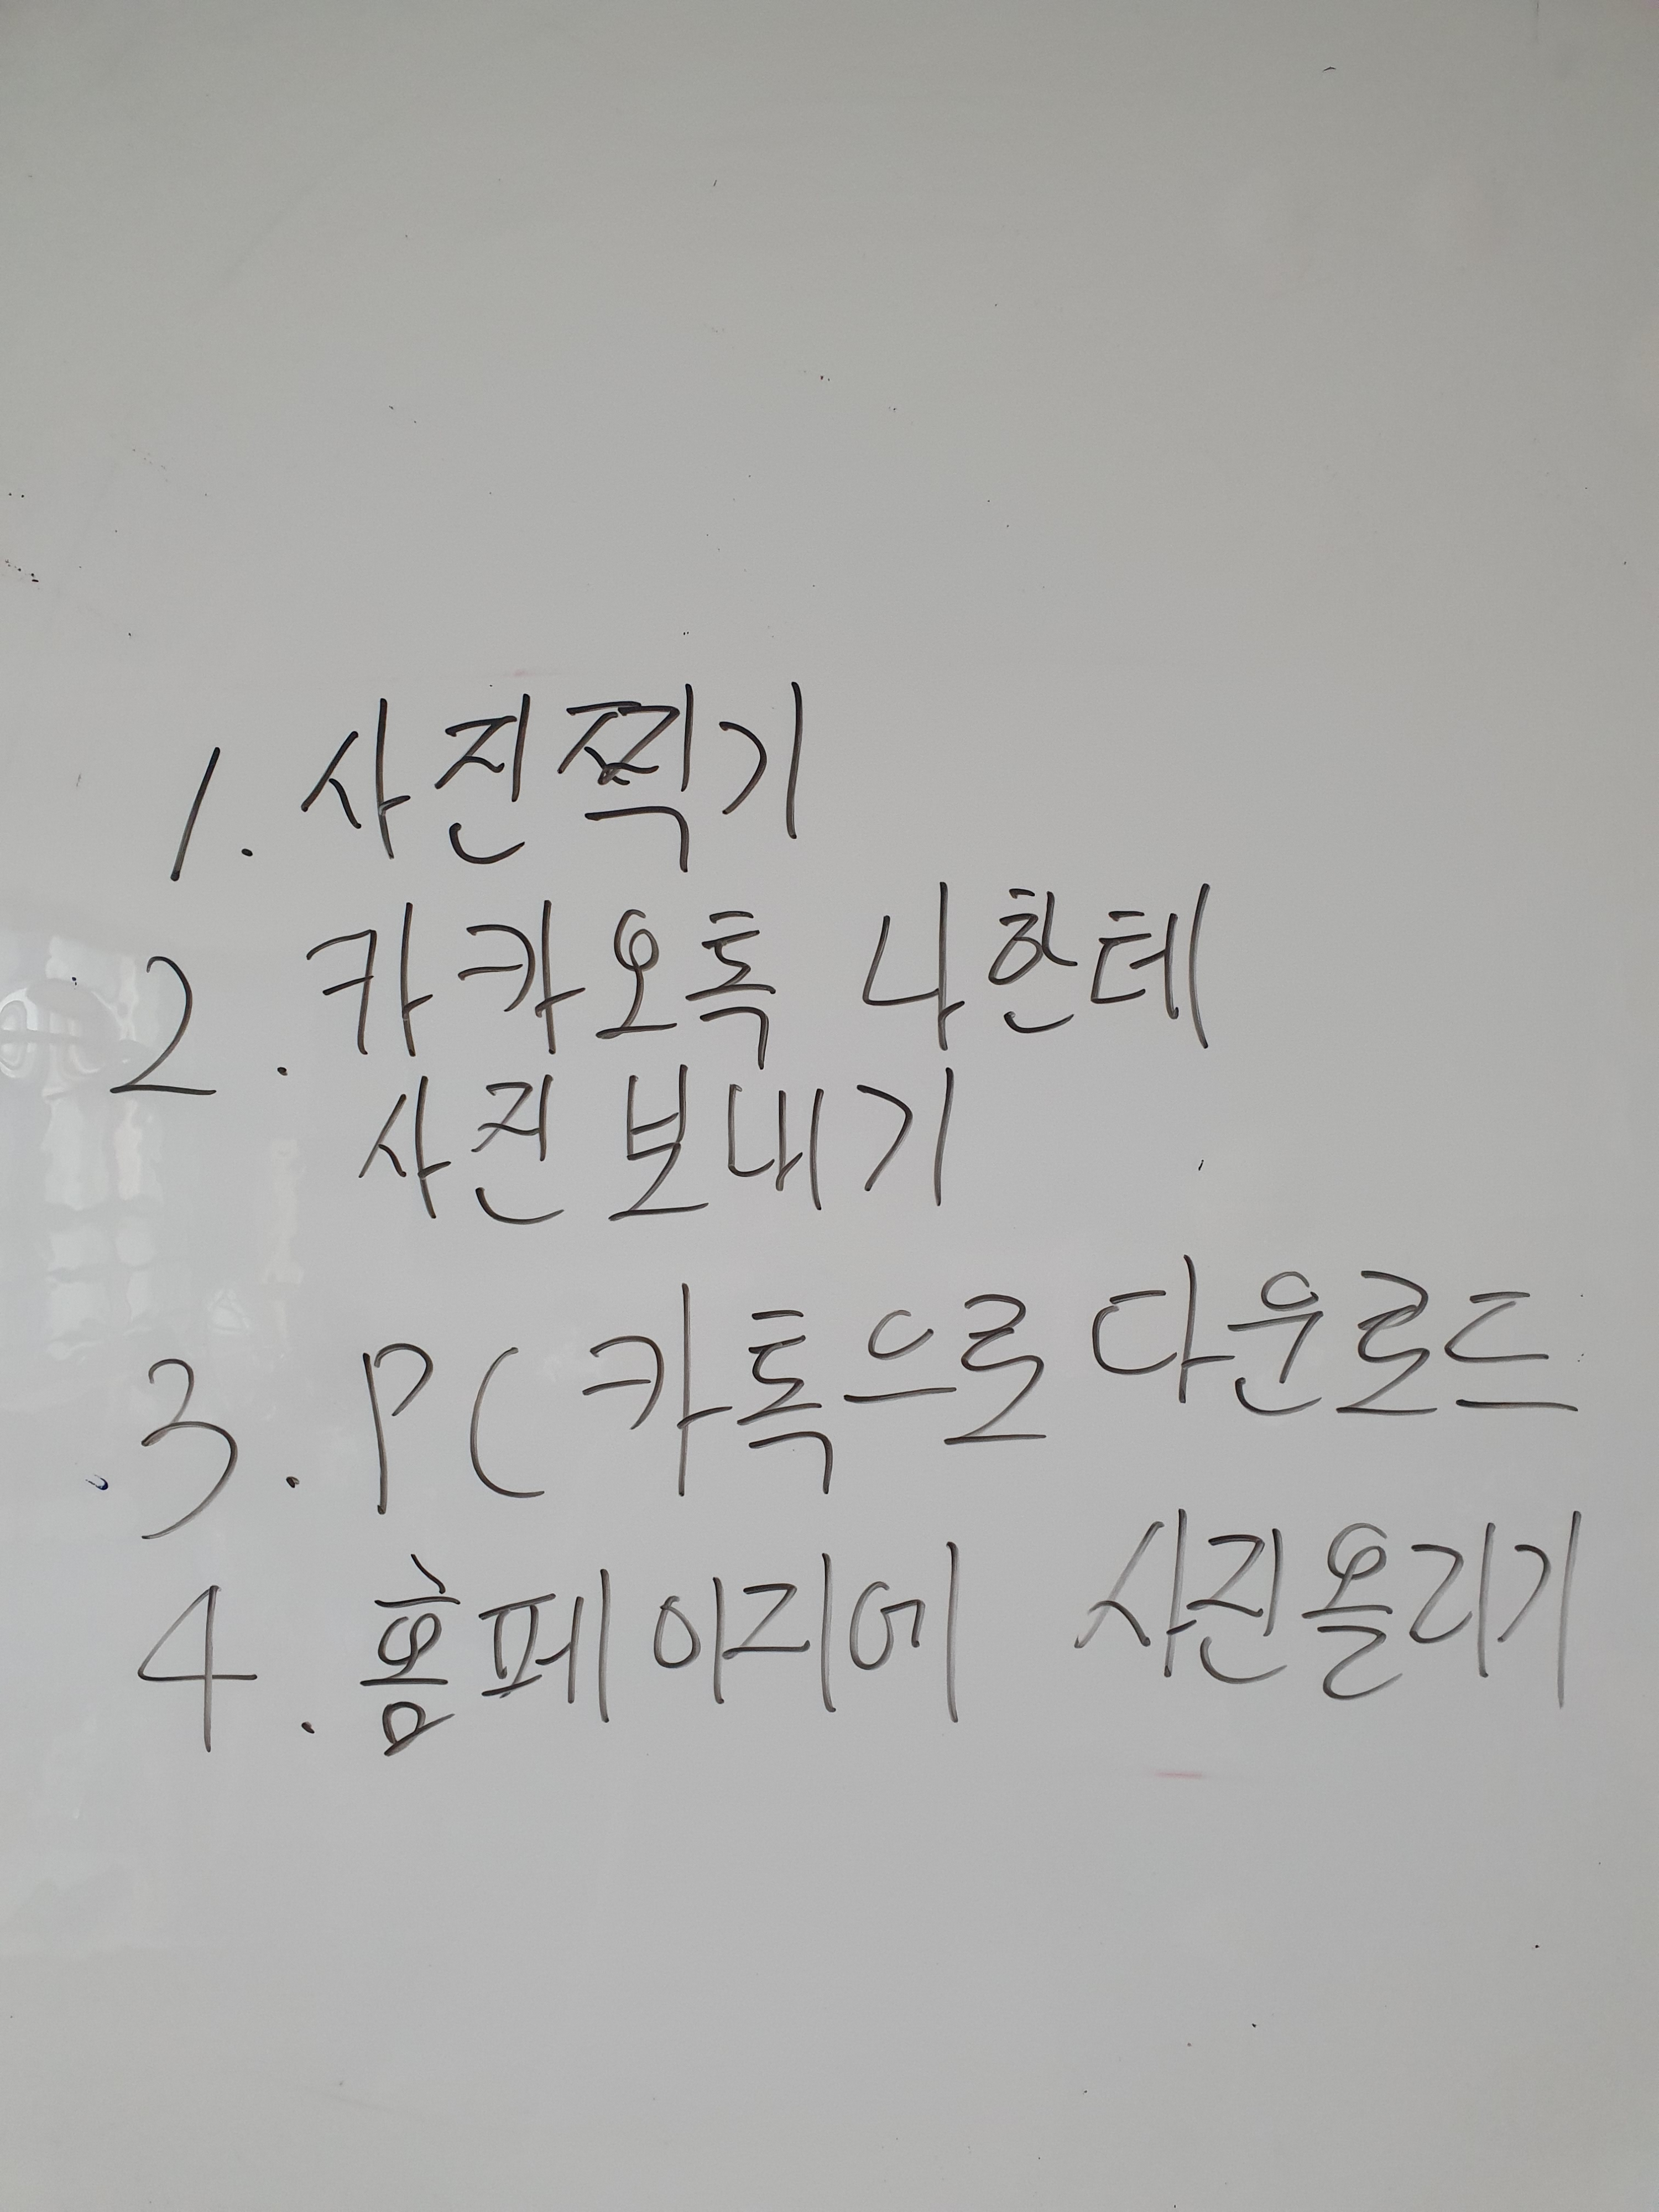 1. 사진찍기
2. 카카오톡 나한테
사진 보내기
3. PC 카톡으로 다운로드
4. 홈페이지에 사진올리기